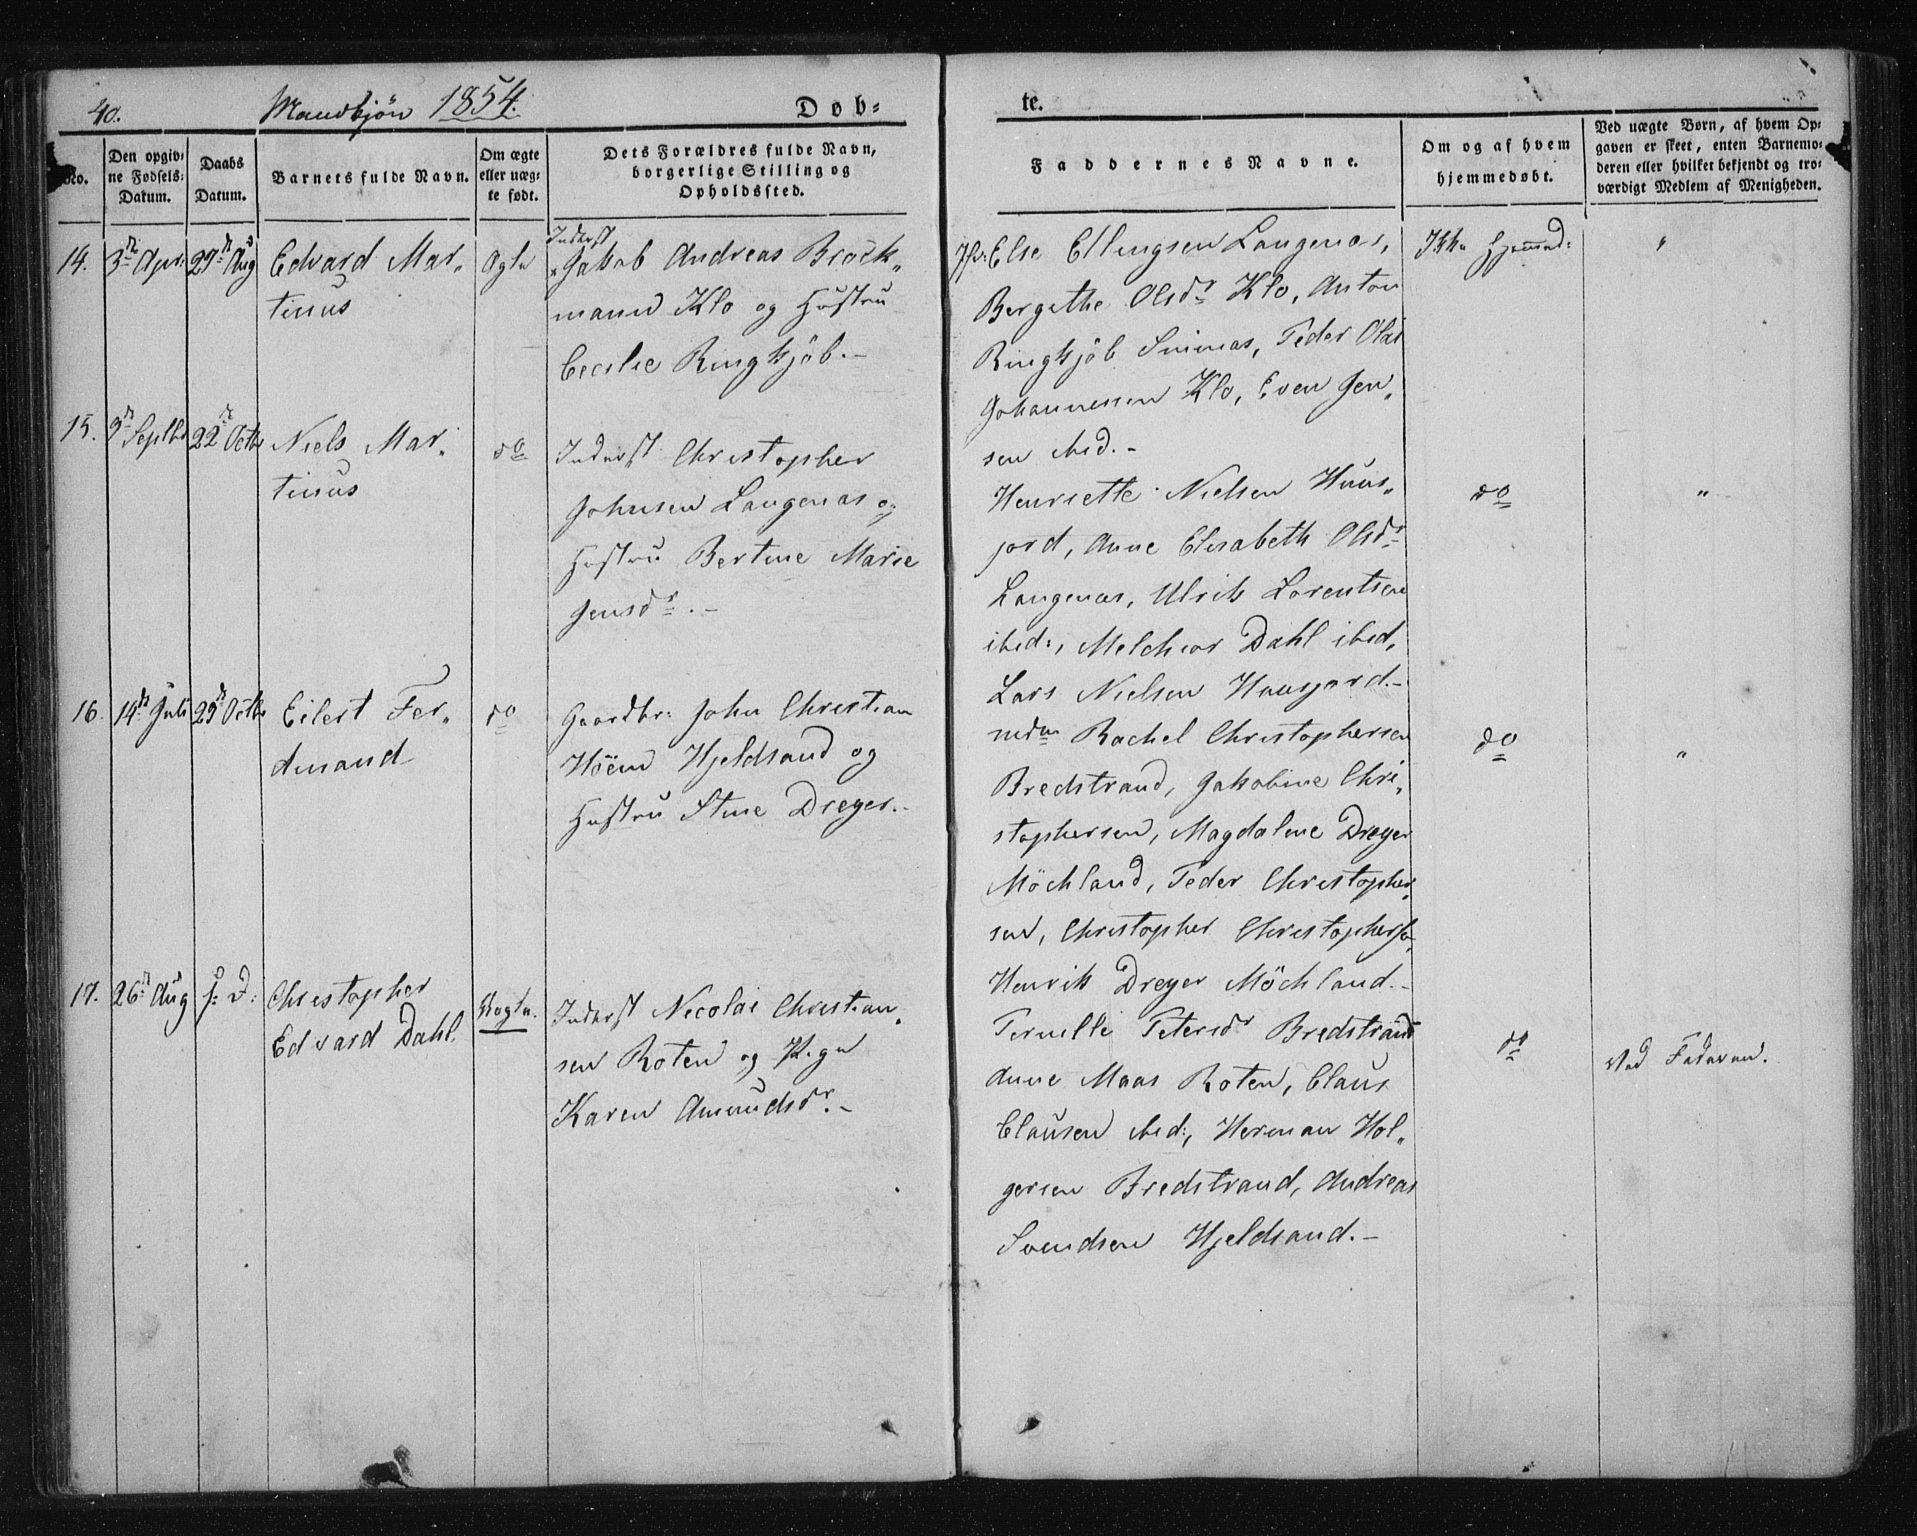 40. Mandkjön 1854. Døb-
te.
No.
Den opgiv-
ne Fødsels-
Datum.
Daabs
Datum.
Barnets fulde Navn.
Om ægte
eller uæg-
te født.
Dets Forældres fulde Navn,
borgerlige Stilling og
Opholdssted.
Faddernes Navne.
Om og af hvem
hjemmedøbt.
Ved uægte Børn, af hvem Op-
gaven er skeet, enten Barnemo-
deren eller hvilket bekjendt og tro-
værdigt Medlem af Menigheden.
14. 3die Apr: 29de Aug Edvard Mar-
tinus
Ægte
Inderst
Jakob Andreas Brock-
mann Klo og Hustru
Cecilie Ringkjöb.-
Else Ellingsen Langenæs,
Bergethe Olsdr Klo, Anton
Ringkjöb Smines, Peder Olai
Johannessen Klo, Even Jen-
sen ibid.-
Ikke Hjemmed:
"
15. 9de Septbr 22de Octbr Niels Mar-
tinus
do
Inderst Christopher
Johnsen Langenæs og
Hustru Bertine Marie
Jensdr.-
Henriette Nielsen Huus-
jord, Anne Elisabeth Olsdr
Langenæs, Ulrik Lorentsen
ibid:, Melchior Dahl ibid,
Lars Nielsen Huusjord.-
do
"
16. 14de Juli 29de Octbr Eilert Fer-
dinand
do
Gaardbr: John Christian
Höen Hjeldsand og
Hustru Stine Dreyer.-
Rachel Christophersen
Bredstrand, Jakobine Chri-
stophersen, Magdalene Dreyer
Möchland, Peder Christopher-
sen, Christopher Christophersen,
Henrik Dreyer Möchland.-
do
"
17. 26de Aug s: D: Christopher
Edvard Dahl.
Uægte.
Inderst Nicolai Christian-
sen Roten og Pige
Karen Amundsdr.-
Pernille Petersdr Bredstrand
Anne Maas Roten, Claus
Clausen ibid:, Herman Hol-
gersen Bredstrand, Andreas
Svendsen Hjeldsand.-
do
Ved Faderen.